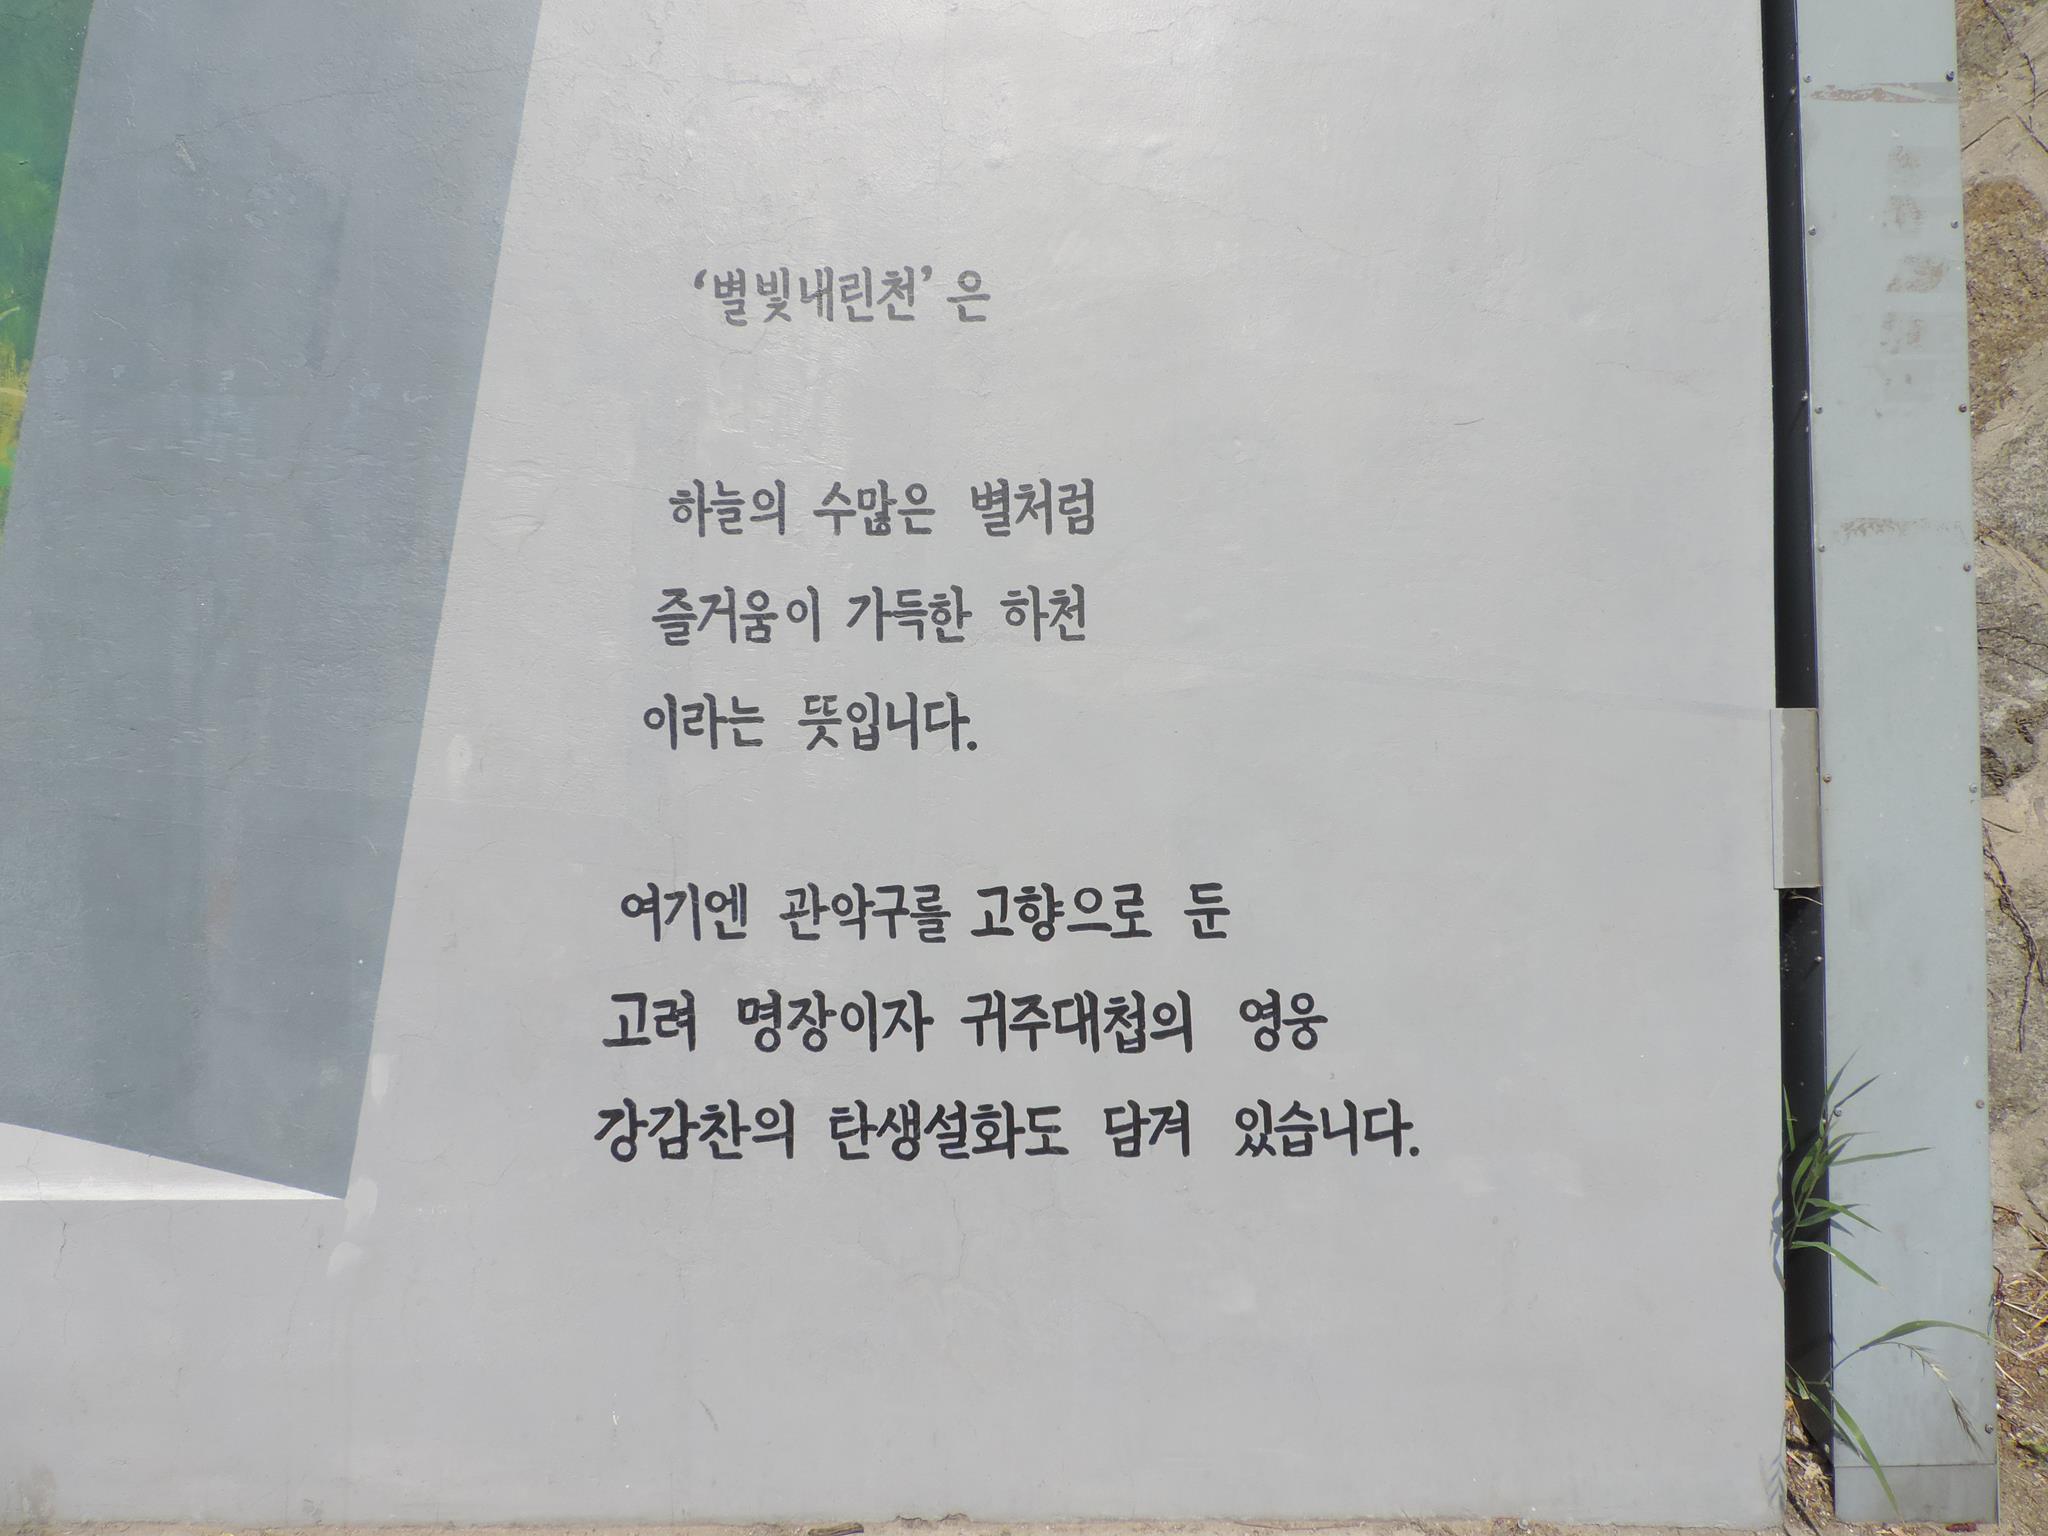 ‘별빛내린천’은
하늘의 수많은 별처럼
즐거움이 가득한 하천
이라는 뜻입니다.
여기엔 관악구를 고향으로 둔
고려 명장이자 귀주대첩의 영웅
강감찬의 탄생설화도 담겨 있습니다.